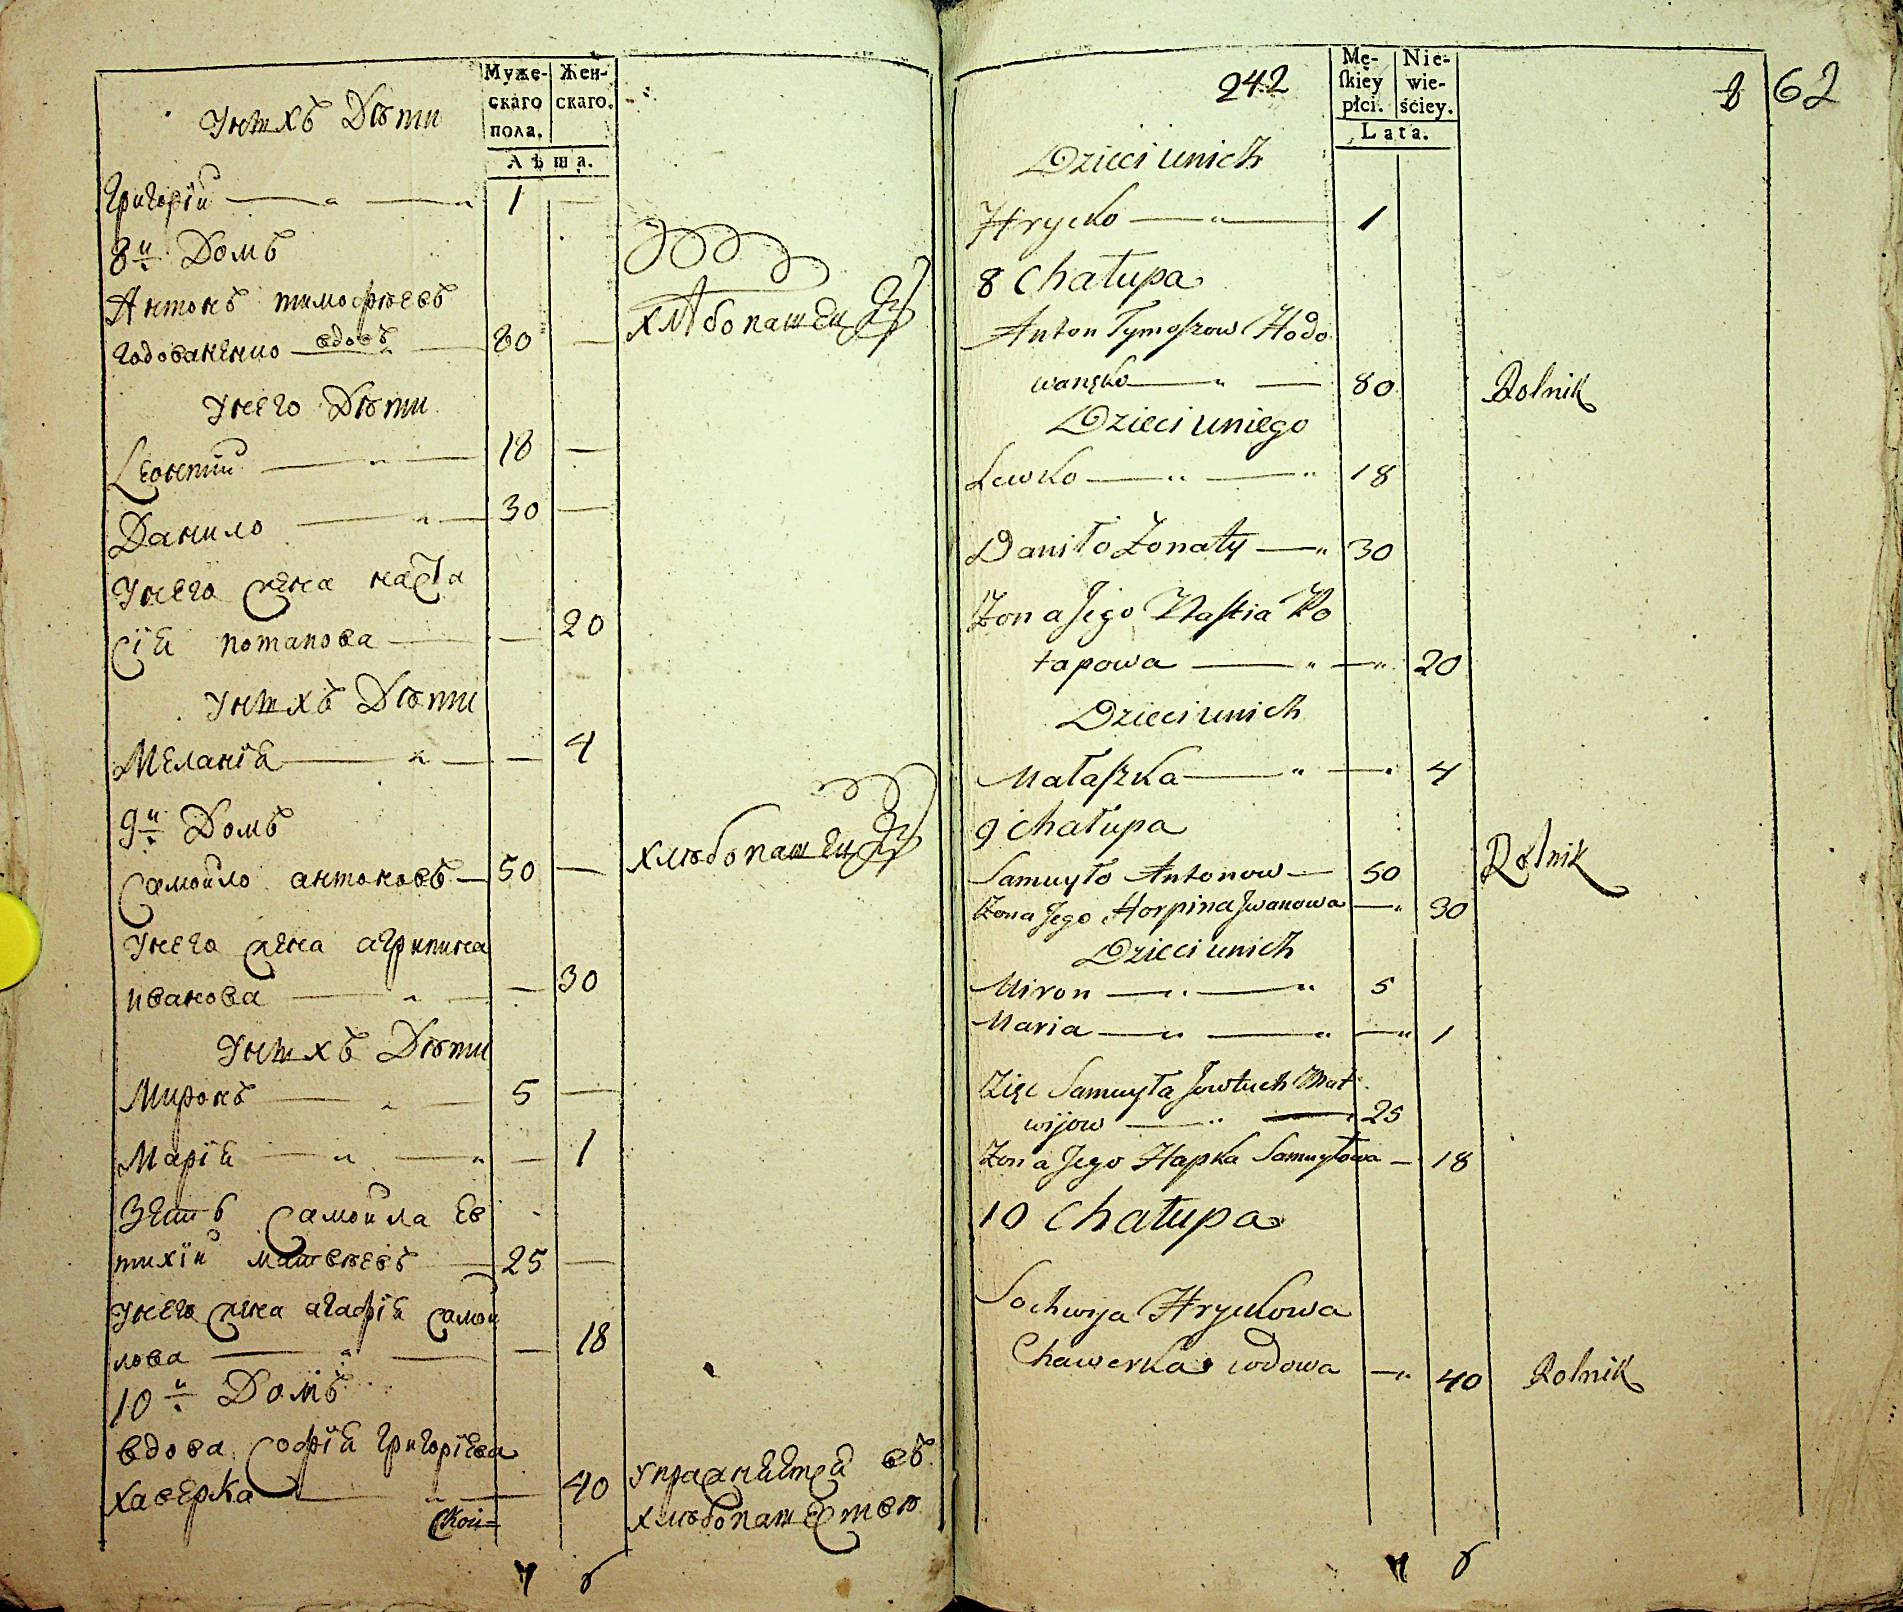 Муже- Жен-
скаго скаго.
пола.
Лѣта.
У нихъ Дѣти
Григорій — „ — „ 1 —
8й Домъ
Антонъ тимофѣевъ
годованенко вдовъ — 80 — хлѣбопашец
У него Дѣти
Леонтій — „ — 18 —
Данило — „ — 30 —
У него жена наста
сія потапова — — 20
У нихъ Дѣти
Меланія — „ — — 4
9й Домъ
Самойло антоновъ — 50 — хлѣбопашец
У него жена агрипина
иванова — „ — — 30
У нихъ Дѣти
Миронъ — „ — 5 —
Марія — „ — „ — 1
Зеть Самойла ев
тихій матвѣевъ — 25 —
У него жена агафія самой
лова — „ — — 18
10й Домъ
вдова Софія григоріева
хаверка — „ — 40 упражняется въ
хлѣбопашествѣ
7 8
242
Mę- Nie-
skiey wie-
płci. ściey.
Lata.
62
Dzieci u nich
Hrycko — „ — 1
8 Chałupa
Anton Tymoszow Hodo
wanęko — „ — 80 Rolnik
Dzieci u niego
Lewko — „ — „ 18
Daniło Żonaty — „ 30
Żona Jego Nastia Po
tapowa — „ — „ 20
Dzieci u nich
Małaszka — „ — „ 4
9 Chałupa
Samuyło Antonow — 50 Rolnik
Żona Jego Horpina Jwanowa — „ 30
Dzieci u nich
Miron — „ — „ 5
Maria — „ — „ — „ 1
Zięć Samuyła Jowtuch Mat
wijow — „ — 25
Żona Jego Hapka Samuyłowa — 18
10 Chałupa
Sochwija Hryckowa
Chawerka wdowa — „ 40 Rolnik
7 8